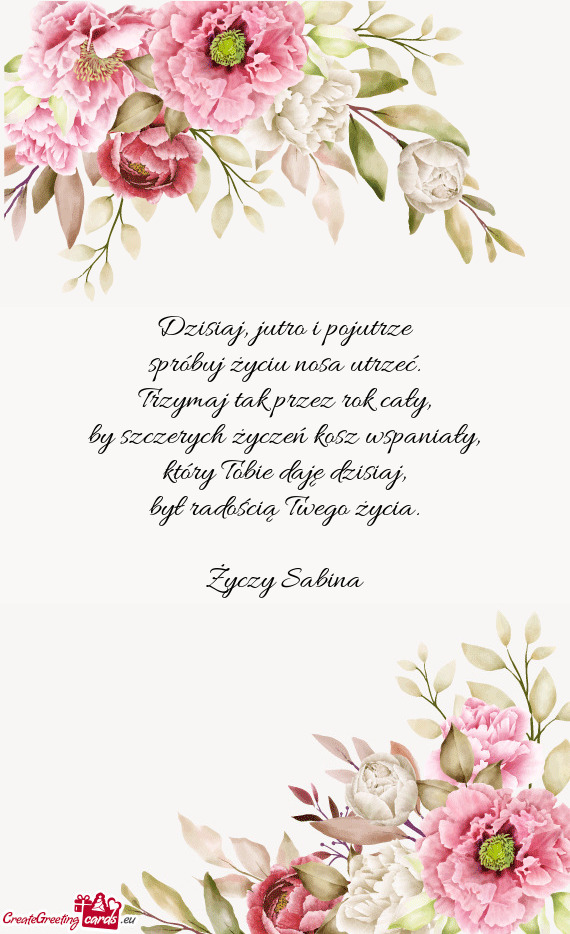 Dzisiaj, jutro i pojutrze
spróbuj życiu nosa utrzeć.
Trzymaj tak przez rok cały,
by szczerych życzeń kosz wspaniały,
który Tobie daję dzisiaj,
był radością Twego życia.
Życzy Sabina
CreateGreeting cards .eu